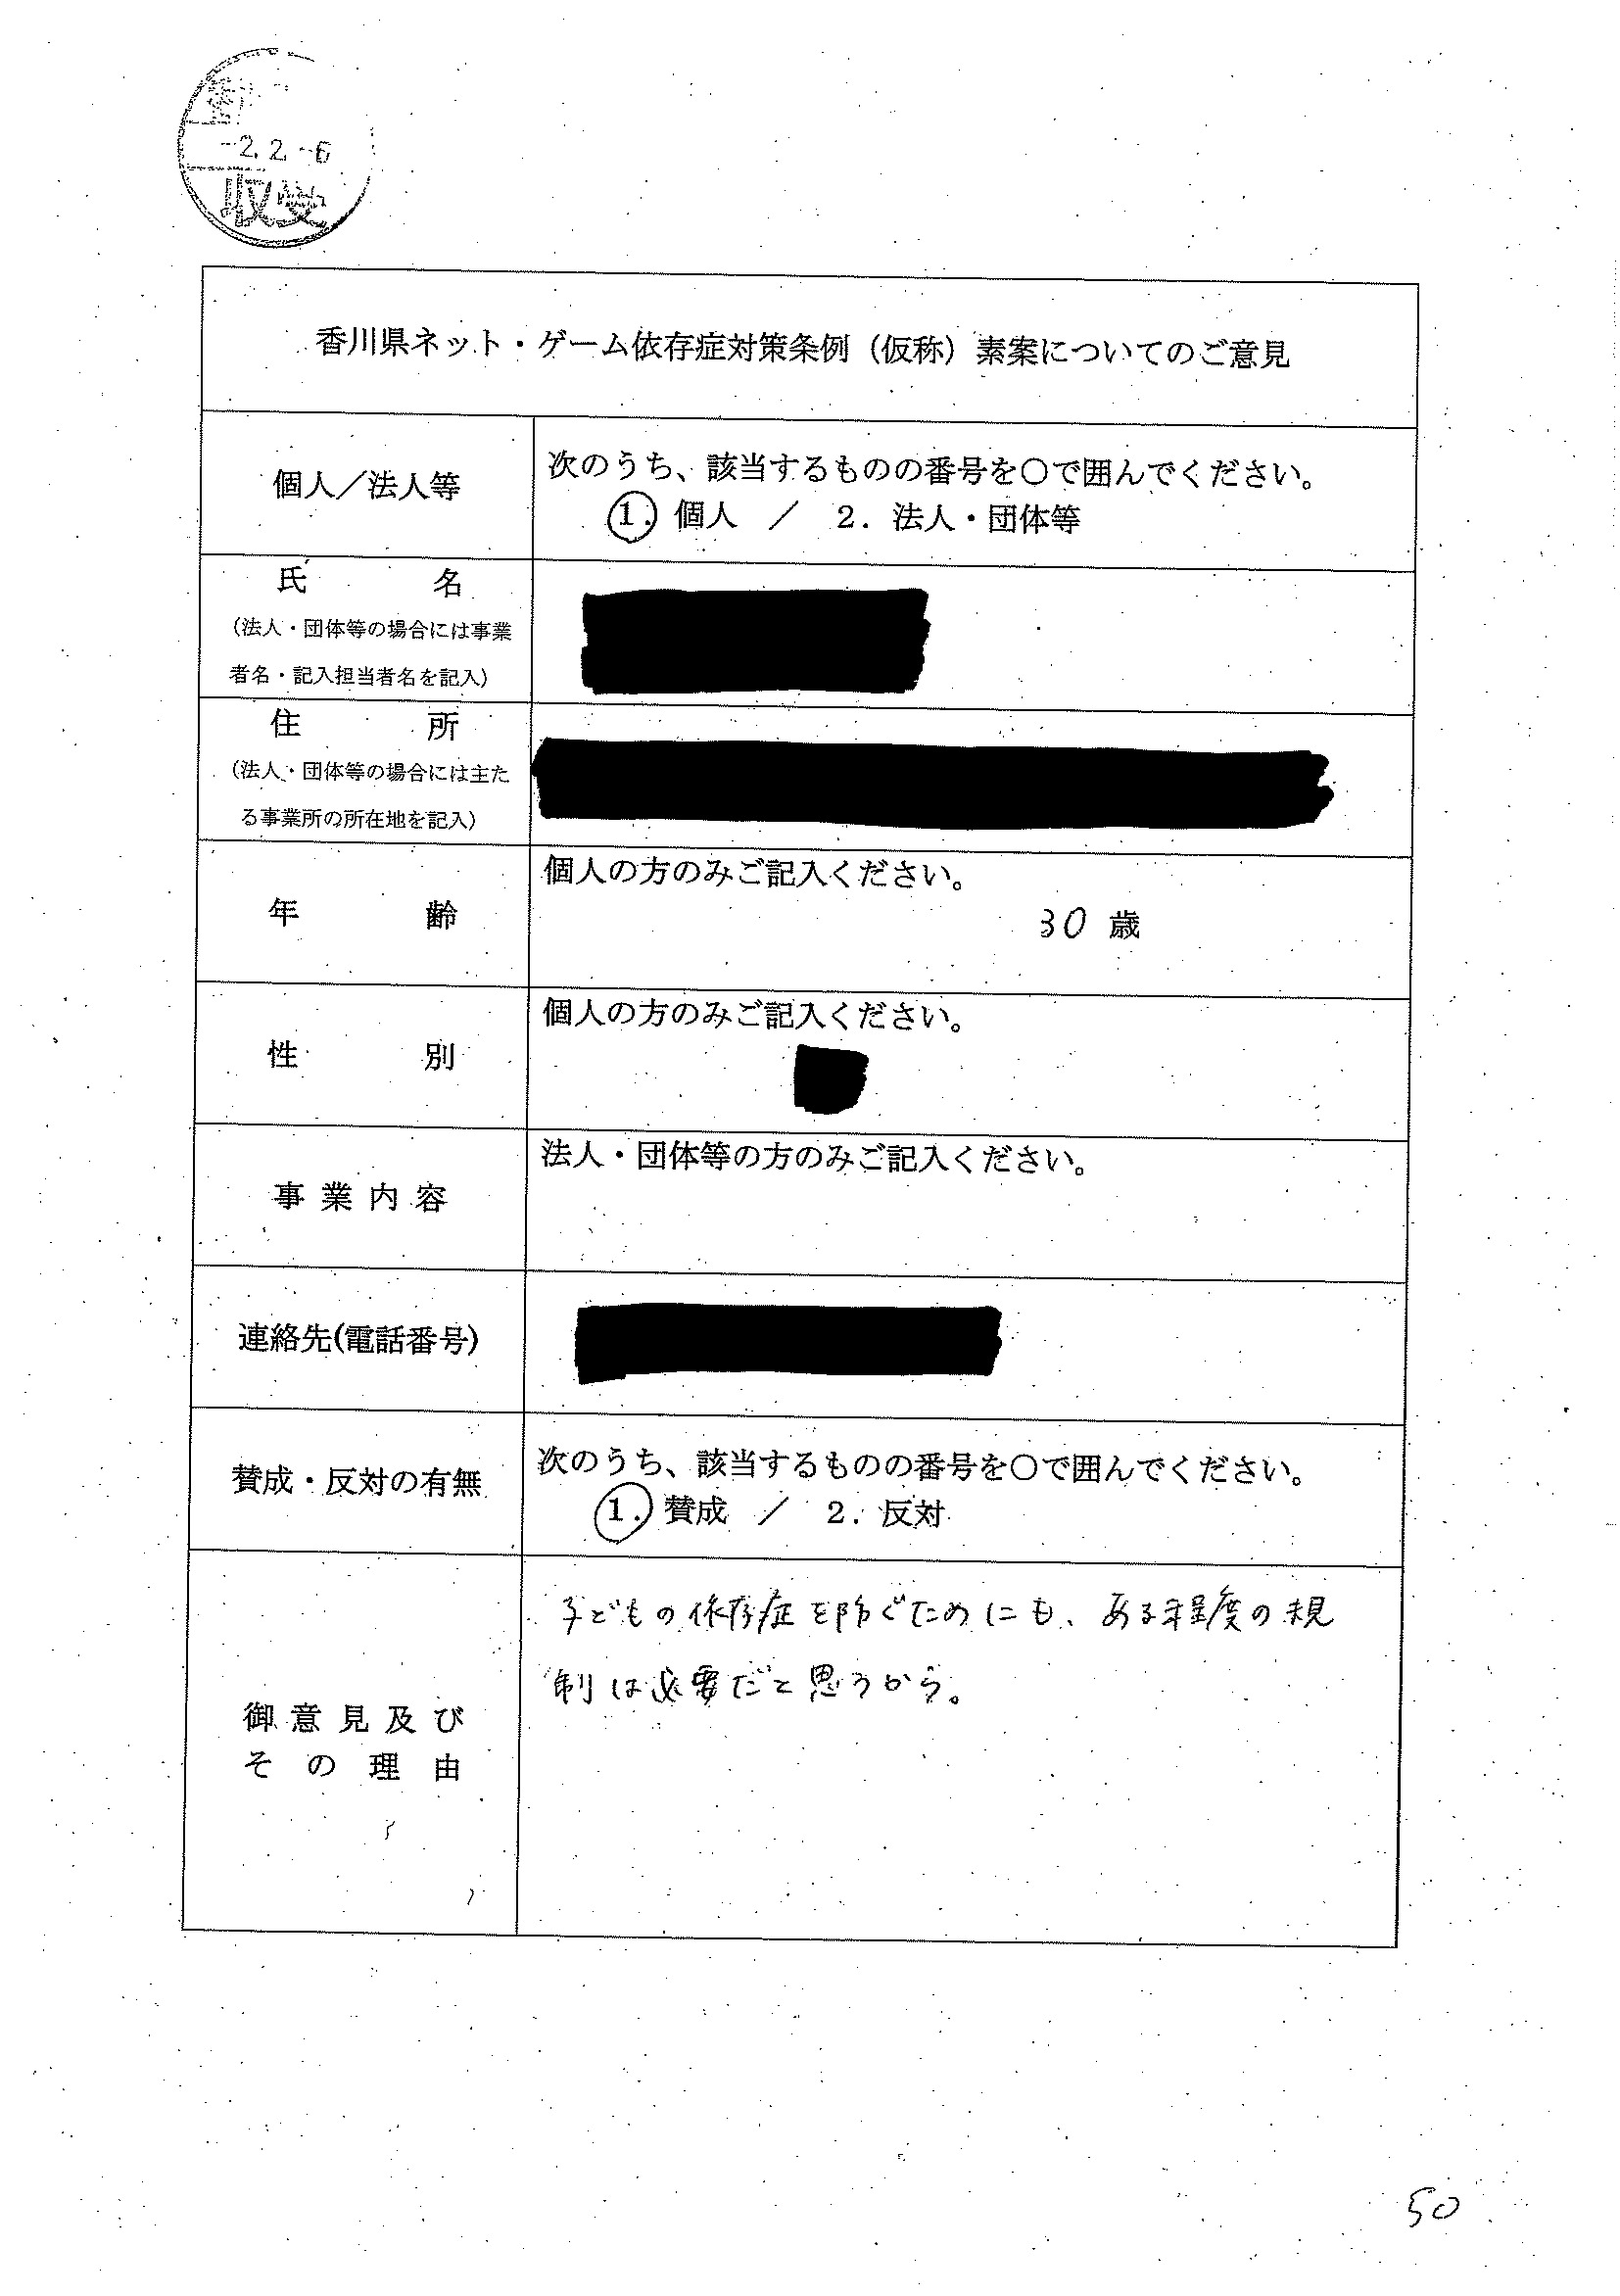 -2.2-6
収受
香川県ネット・ゲーム依存症対策条例（仮称）素案についてのご意見
個人／法人等
次のうち、該当するものの番号を○で囲んでください。
1. 個人 ／ 2. 法人・団体等
氏名
（法人・団体等の場合には事業
者名・記入担当者名を記入）
住所
（法人・団体等の場合には主た
る事業所の所在地を記入）
年齢
個人の方のみご記入ください。
30 歳
性別
個人の方のみご記入ください。
事業内容
法人・団体等の方のみご記入ください。
連絡先(電話番号)
賛成・反対の有無
次のうち、該当するものの番号を○で囲んでください。
1. 賛成 ／ 2. 反対
御意見及び
その理由
子どもの依存症を防ぐためにも、ある程度の規
制は必要だと思うから。
50